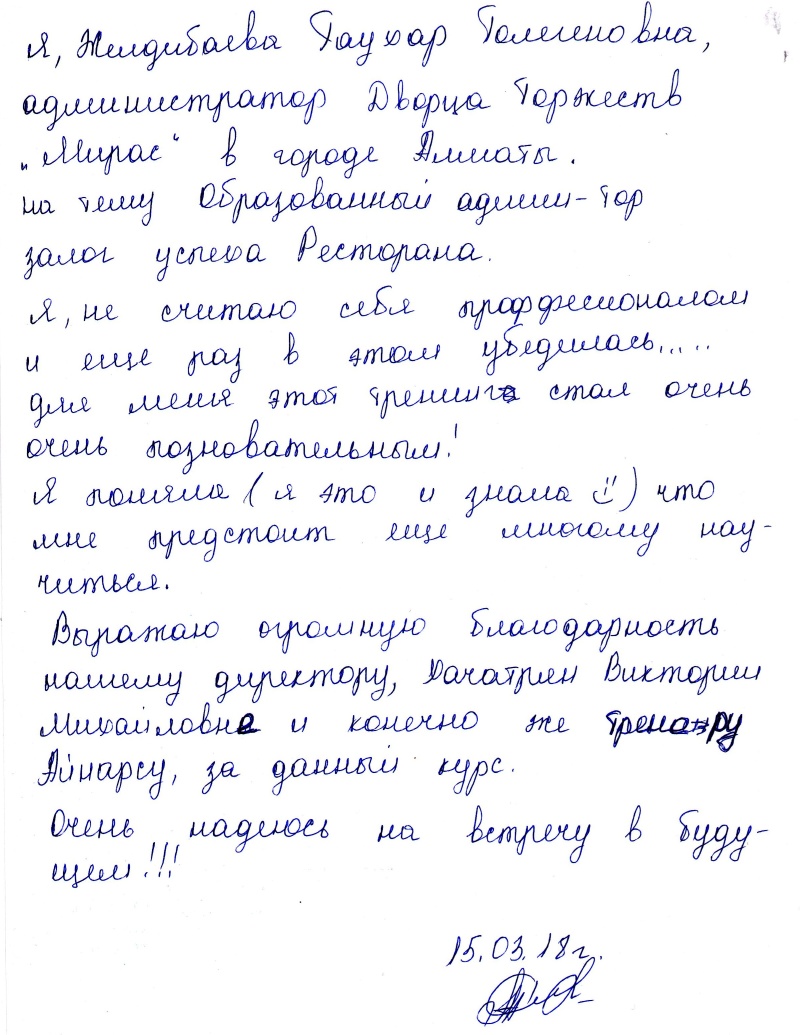 Я, Желдибаева Гаухар Толегеновна,
администратор Дворца Торжеств
„Мирас“ в городе Алматы.
на тему Образованный админ-тор
залог успеха Ресторана.
Я, не считаю себя профессионалом
и еще раз в этом убедилась.....
для меня этот тренинг стал очень
очень позновательным!
Я поняла (я это и знала ☺) что
мне предстоит еще многому нау-
читься.
Выражаю огромную благодарность
нашему директору, Хачатрян Виктории
Михайловне и конечно же тренеру
Айнарсу, за данный курс.
Очень надеюсь на встречу в буду-
щем!!!
15.03.18г.